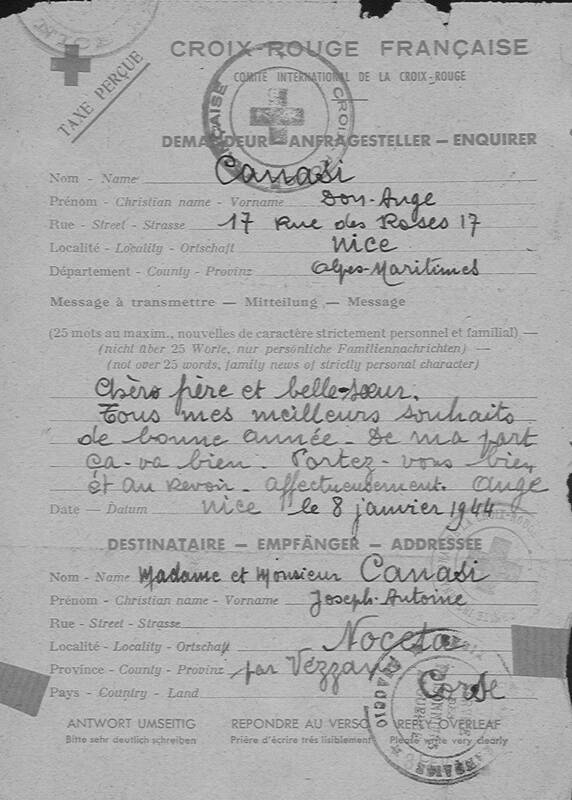 TAXE PERÇUE
CROIX-ROUGE FRANÇAISE
COMITÉ INTERNATIONAL DE LA CROIX-ROUGE
DEMANDEUR - ANFRAGESTELLER - ENQUIRER
Nom - Name Canasi
Prénom - Christian name - Vorname Don-Ange
Rue - Street - Strasse 17 Rue des Roses 17
Localité - Locality - Ortschaft Nice
Département - County - Provinz Alpes-Maritimes
Message à transmettre — Mitteilung — Message
(25 mots au maxim., nouvelles de caractère strictement personnel et familial) —
(nicht über 25 Worte, nur persönliche Familiennachrichten) —
(not over 25 words, family news of strictly personal character)
Chers frère et belle-sœur.
Tous mes meilleurs souhaits
de bonne année. De ma part
ça-va bien. Portez-vous bien,
et au revoir. affectueusement. ange
Date — Datum Nice le 8 janvier 1944
DESTINATAIRE — EMPFÄNGER — ADDRESSÉE
Nom - Name Madame et Monsieur Canasi
Prénom - Christian name - Vorname Joseph-Antoine
Rue - Street - Strasse
Localité - Locality - Ortschaft Noceta
Province - County - Provinz par Vezzani
Pays - Country - Land Corse
ANTWORT UMSEITIG REPONDRE AU VERSO REPLY OVERLEAF
Bitte sehr deutlich schreiben Prière d'écrire très lisiblement Please write very clearly